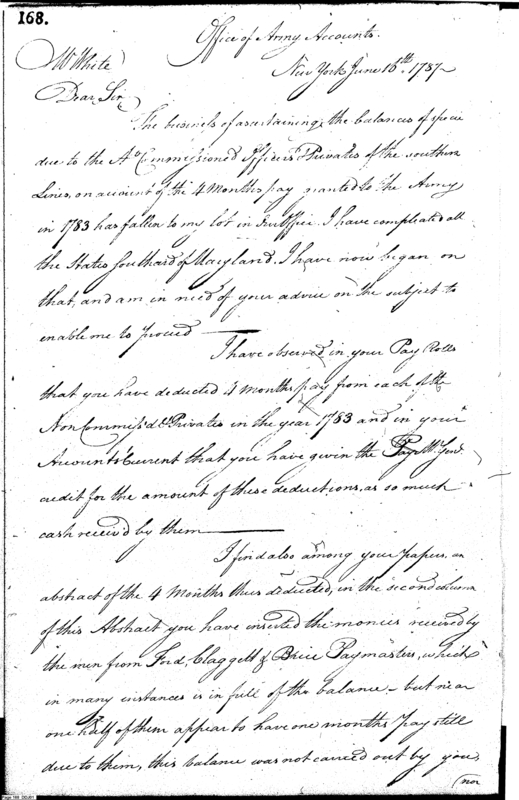 168.
Office of Army Accounts.
New York June 16th. 1787
W White
Dear Sir
The business of ascertaining the balances of specie
due to the Nn Commissioned Officers & Privates of the southern
Lines, on account of the 4 Months pay granted to the Army
in 1783 has fallen to my lot in the Office. I have compleated all
the States Southard of Maryland. I have now began on
that, and am in need of your advice on the subject to
enable me to proceed
I have observed in your Pay Rolls
that you have deducted 4 months pay from each of the
Non Commiss'd & Privates in the year 1783 and in your
Accounts Current that you have given the Pay Mr. Genl.
credit for the amount of these deductions, as so much
cash receiv'd by them
I find also among your papers, an
abstract of the 4 Months thus deducted, in the second column
of this Abstract you have inserted the monies received by
the men from Ford, Claggett & Brice Paymasters, which
in many instances is in full of the balance - but near
one half of them appear to have one months Pay still
due to them, this balance was not carried out by you,
nor